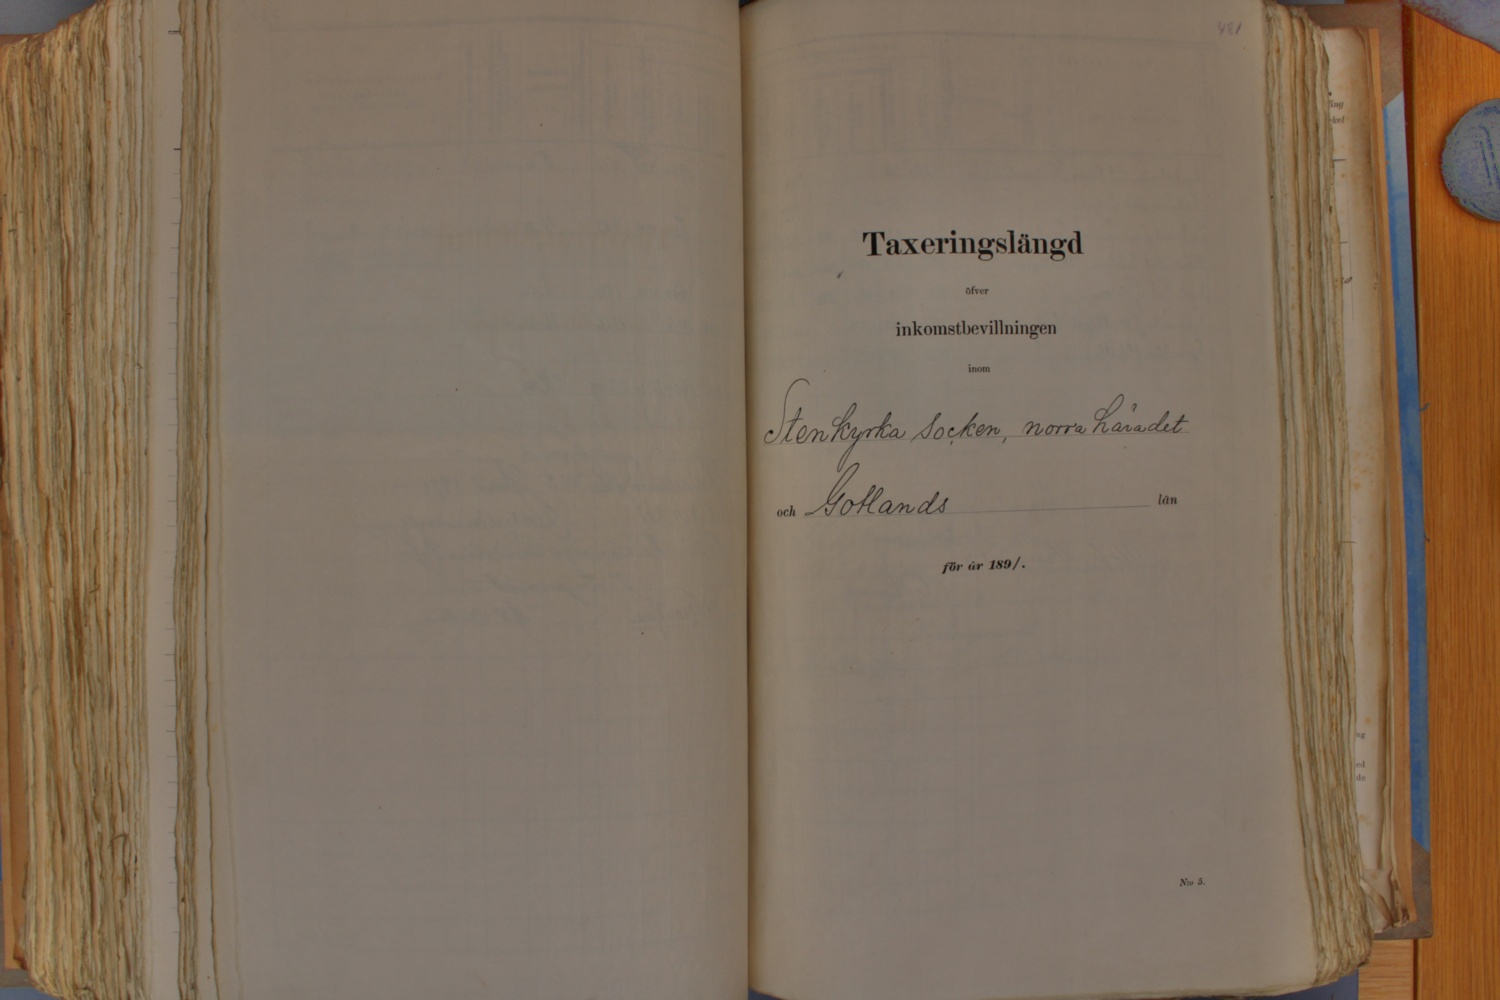 481
Taxeringslängd
öfver
inkomstbevillningen
inom
Stenkyrka socken, norra häradet
och Gotlands län
för år 1891.
N:o 5.